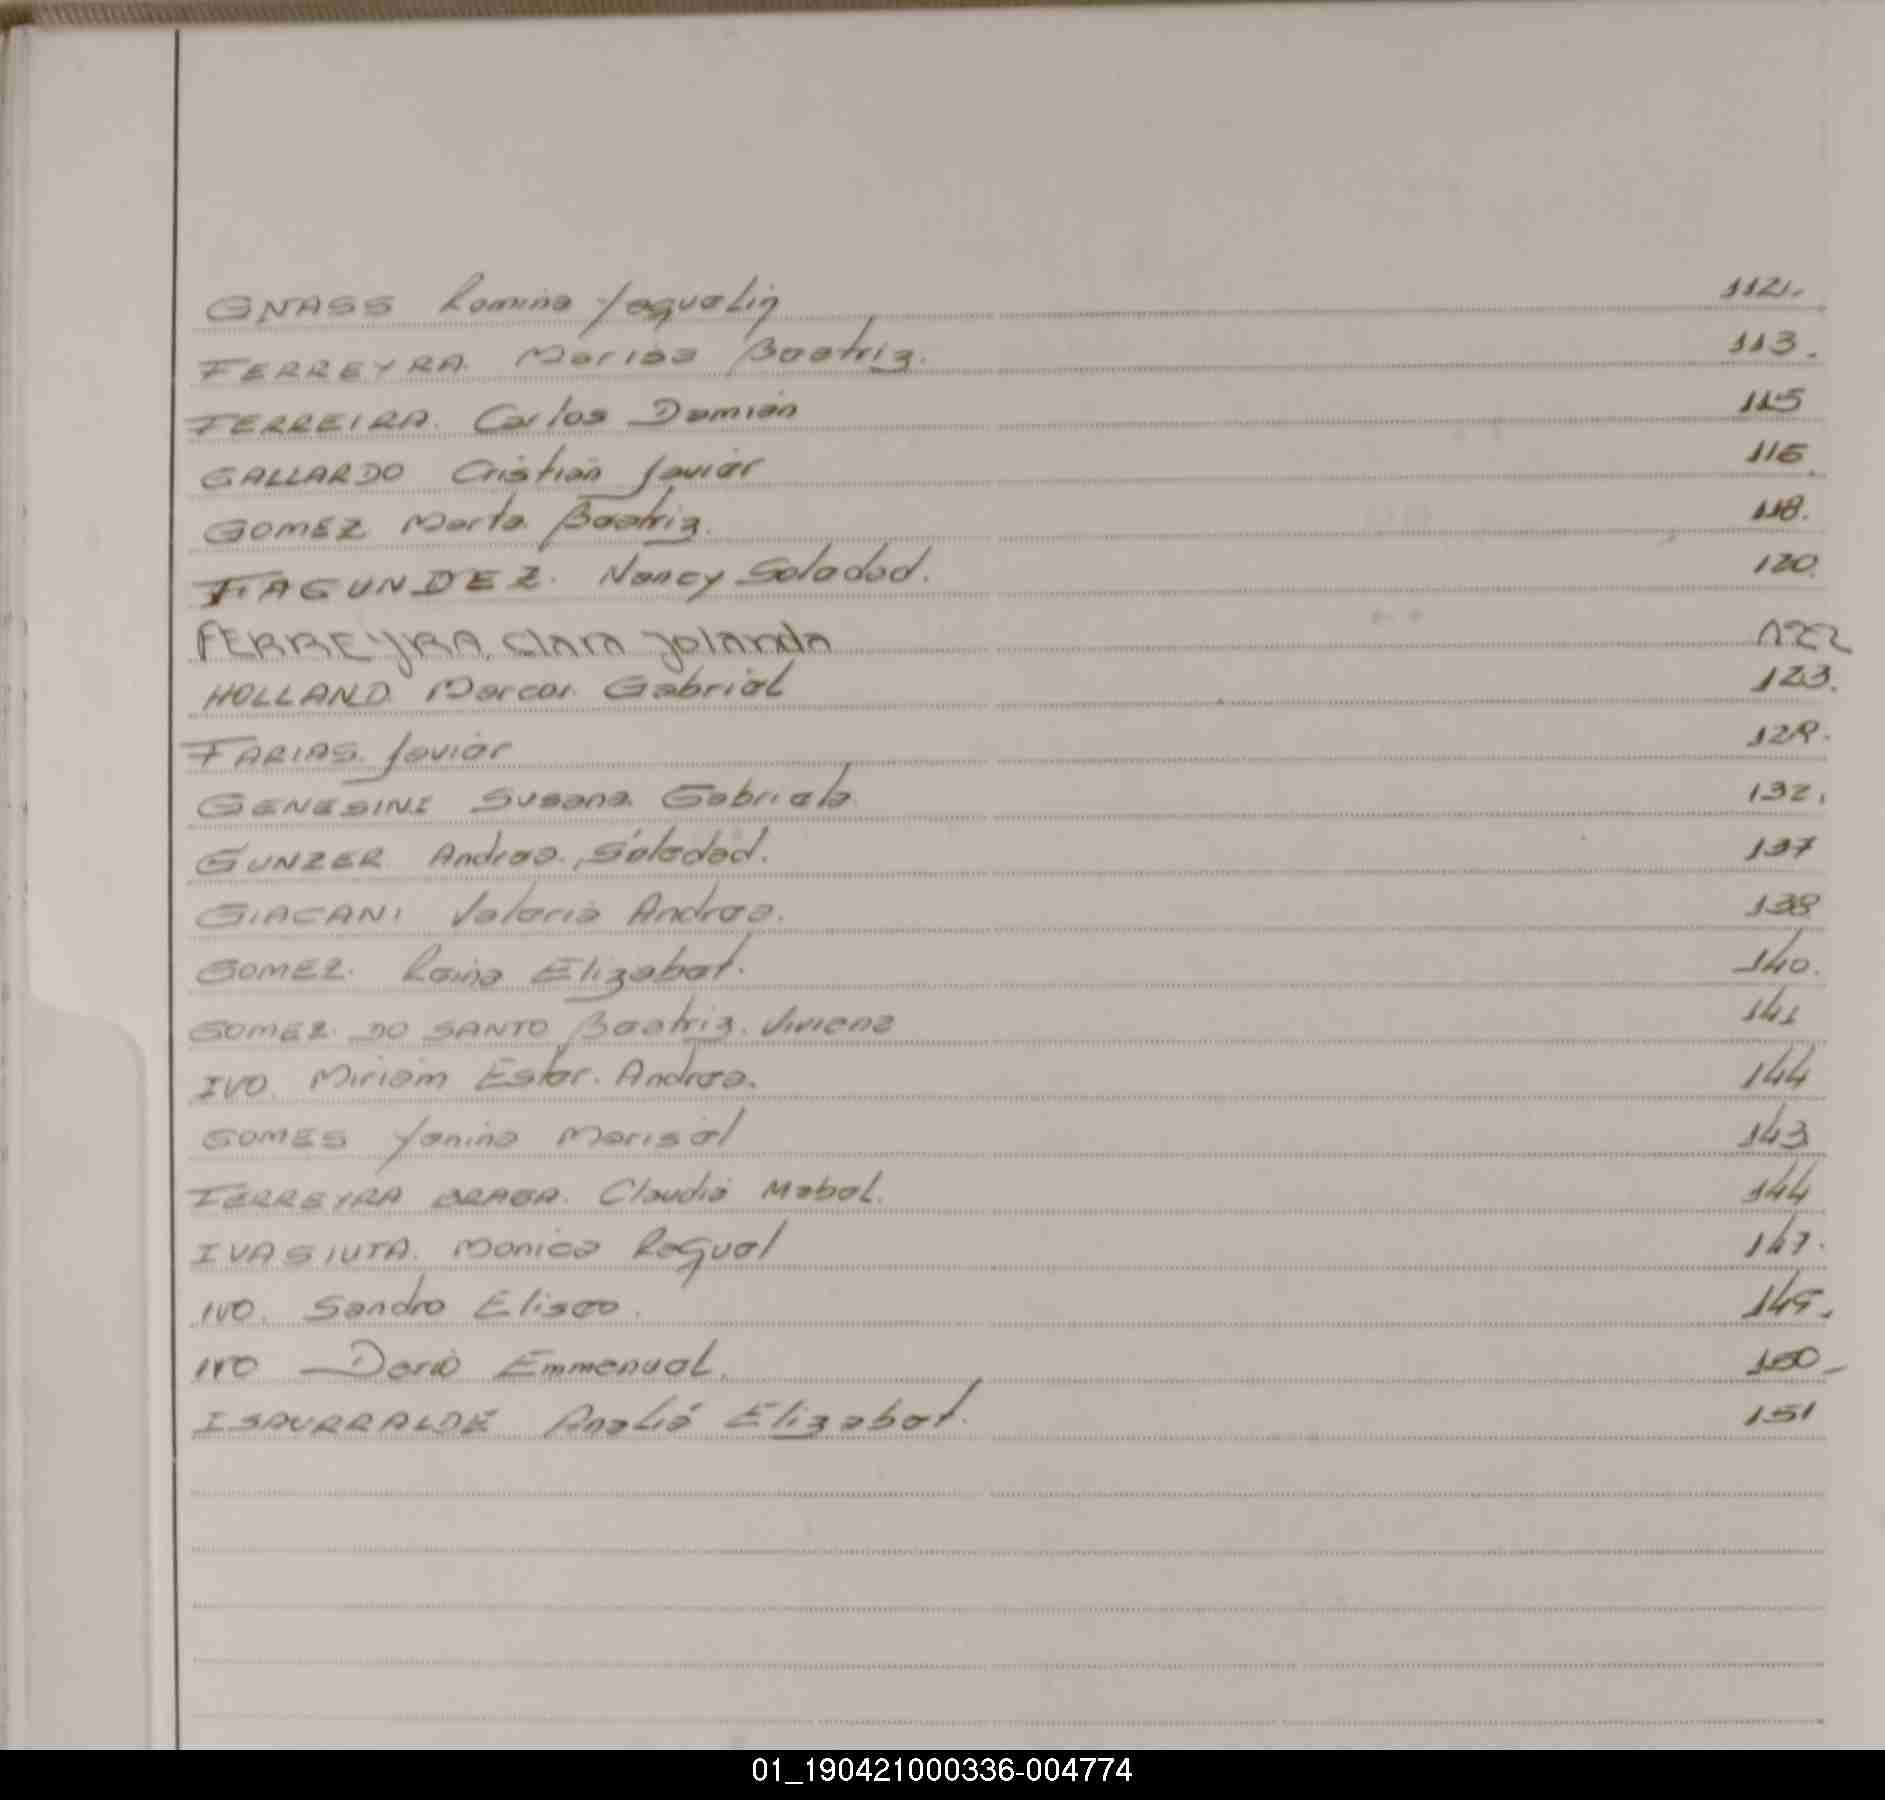 GNASS Romina Yaquelin 112.
FERREYRA. Marisa Beatriz. 113.
FERREIRA. Carlos Damian 115
GALLARDO Cristian Javier 116.
GOMEZ Marta Beatriz. 118.
FAGUNDEZ. Nancy Soledad. 120.
FERREYRA, Clara Yolanda 122
HOLLAND Marcos Gabriel 123.
FARIAS. Javier
GENESINI Susana Gabriela 132.
GUNZER Andrea. Soledad. 137
GIACANI Valeria Andrea. 138
GOMEZ. Elizabet. 140.
GOMEZ DO SANTO Beatriz. Viviana 141
IVO. Miriam Ester. Andrea. 144
GOMES Yanina Marisel 143
FERREYRA BRAGA. Claudia Mabel. 144
IVASIUTA. Monica Raquel 147.
IVO. Sandro Eliseo.
IVO Dario Emmanuel. 150
ISAURRALDE Analia Elizabet. 151
01_190421000336-004774